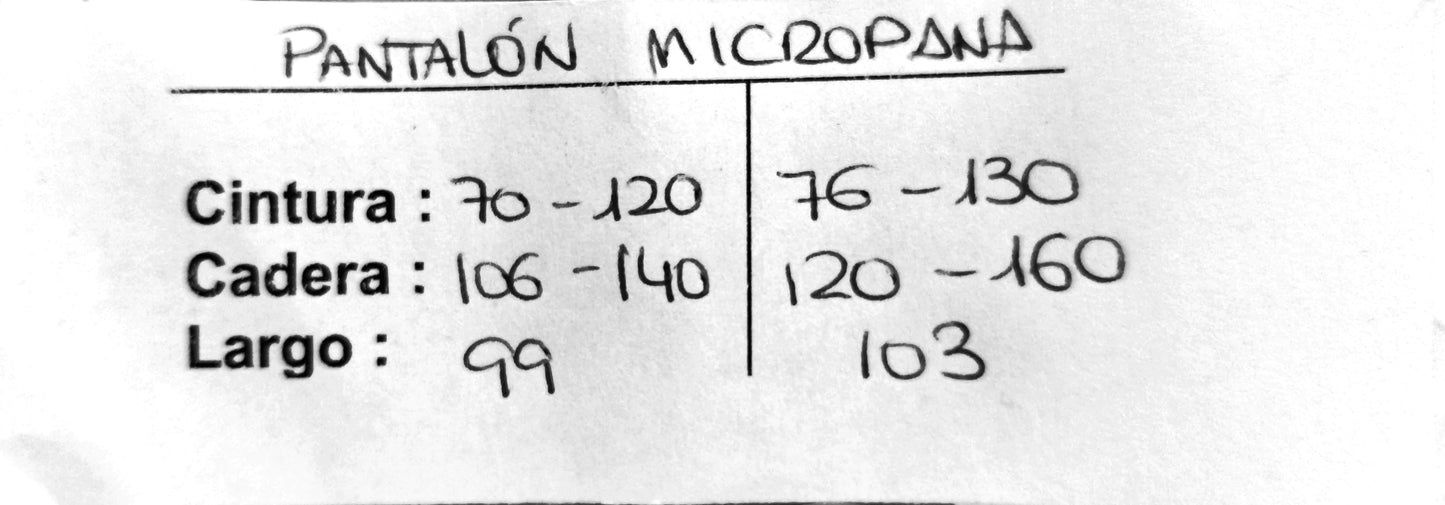 PANTALÓN MICROPANA
Cintura : 70 - 120 76 - 130
Cadera : 106 - 140 120 - 160
Largo : 99 103